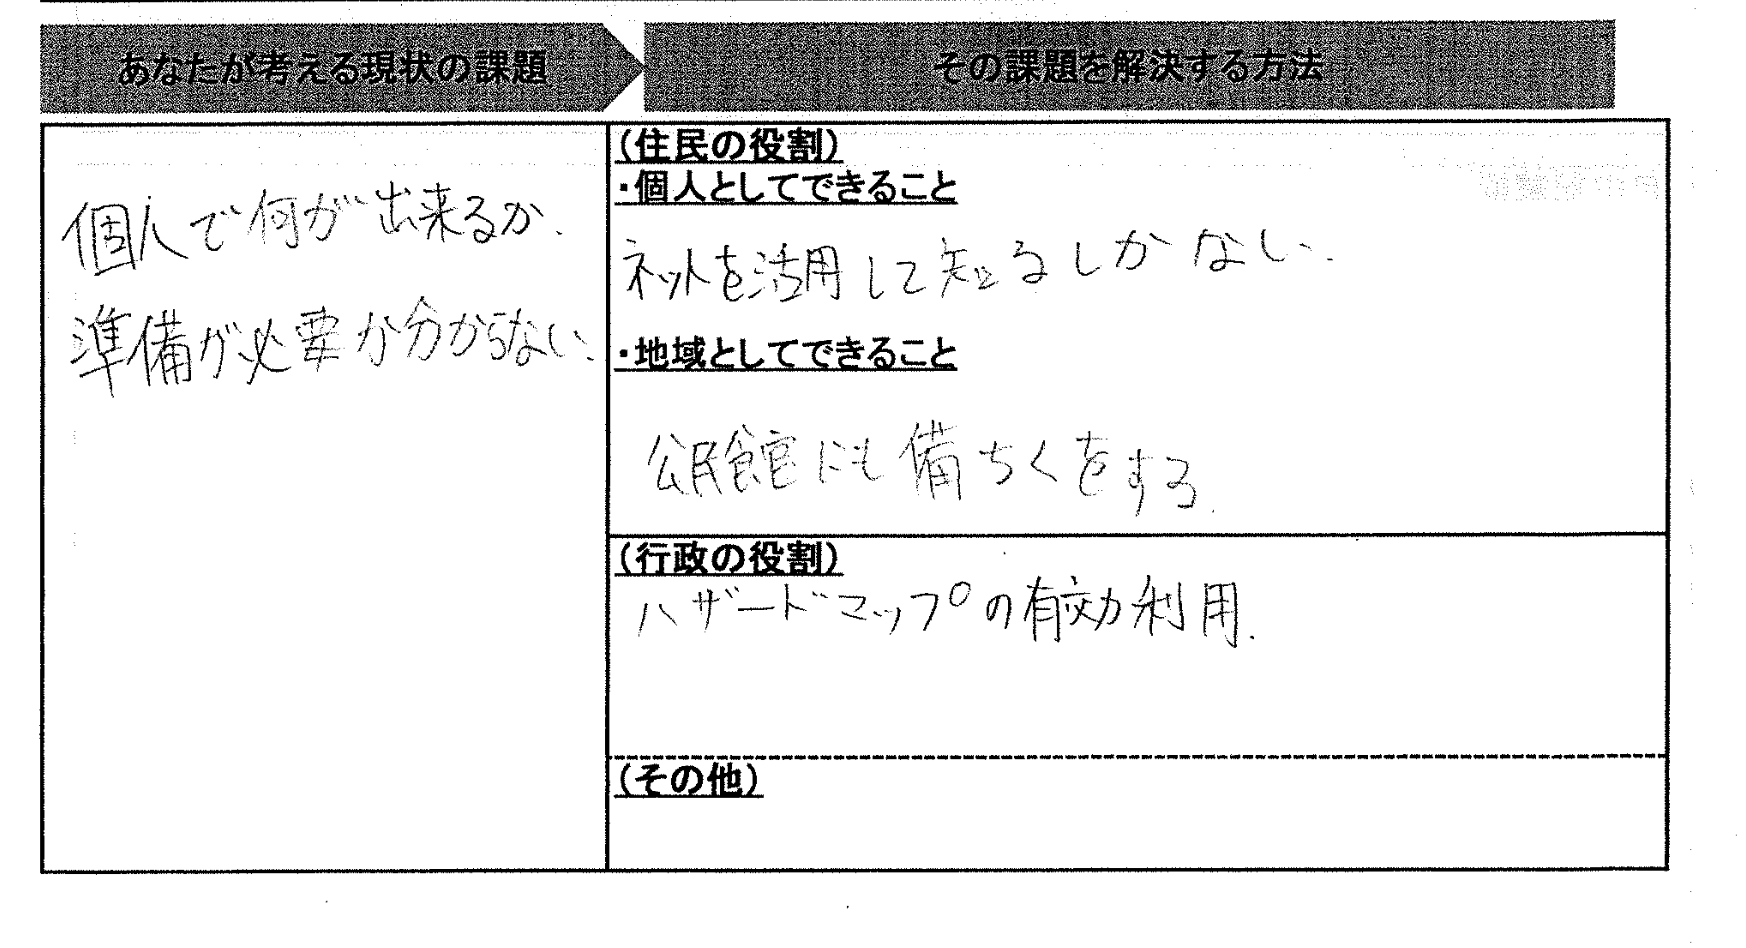 あなたが考える現状の課題
その課題を解決する方法
個人で何が出来るか.
準備が必要か分からない.
(住民の役割)
・個人としてできること
ネットを活用して知るしかない.
・地域としてできること
公民館にも備ちくをする.
(行政の役割)
ハザードマップの有効利用.
(その他)